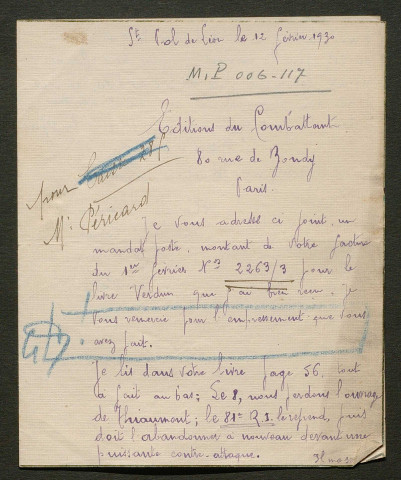 St Pol de Léon le 12 février 1930
M.P 006-117
Editions du Combattant
80 rue de Bondy
Paris.
pour
Mr Péricard
Je vous adresse ci joint, un
mandat poste, montant de votre facture
du 1er février No 2263/3 pour le
livre Verdun que j'ai bien reçu. Je
vous remercie pour l'empressement que vous
avez fait.
Je lis dans votre livre page 56, tout
à fait au bas; Le 8, nous perdons l'ouvrage
de Thiaumont; le 81e R.I. le reprend, puis
doit l'abandonner à nouveau devant une
puissante contre-attaque.